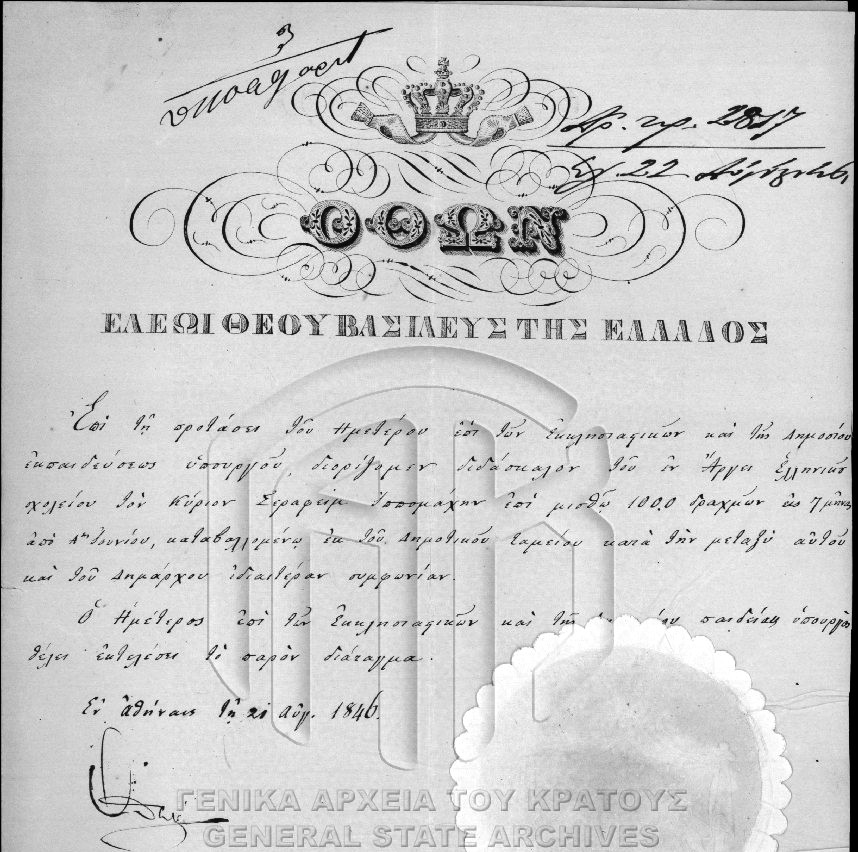 Ἀρ. πρ. 2817
22
ΟΘΩΝ
ΕΛΕΩΙ ΘΕΟΥ ΒΑΣΙΛΕΥΣ ΤΗΣ ΕΛΛΑΔΟΣ
Ἐπὶ τῇ προτάσει τοῦ Ἡμετέρου ἐπὶ τῶν Ἐκκλησιαστικῶν καὶ τῆς Δημοσίου
ἐκπαιδεύσεως ὑπουργοῦ, διορίζομεν διδάσκαλον τοῦ ἐν Ἄργει Ἑλληνικοῦ
σχολείου τὸν Κύριον Σεραφεὶμ Ἱππομάχην ἐπὶ μισθῷ 100,0 δραχμῶν ὡς 7 μῆνας
ἀπὸ Ἰουνίου, καταβαλλομένῳ ἐκ τοῦ Δημοτικοῦ ταμείου κατὰ τὴν μεταξὺ αὐτοῦ
καὶ τοῦ Δημάρχου ἰδιαιτέραν συμφωνίαν.
Ὁ Ἡμέτερος ἐπὶ τῶν Ἐκκλησιαστικῶν καὶ τῆς παιδείας ὑπουργὸς
θέλει ἐκτελέσει τὸ παρὸν διάταγμα.
Ἐν Ἀθήναις τῇ 21 Αὐγ. 1846.
ΓΕΝΙΚΑ ΑΡΧΕΙΑ ΤΟΥ ΚΡΑΤΟΥΣ
GENERAL STATE ARCHIVES